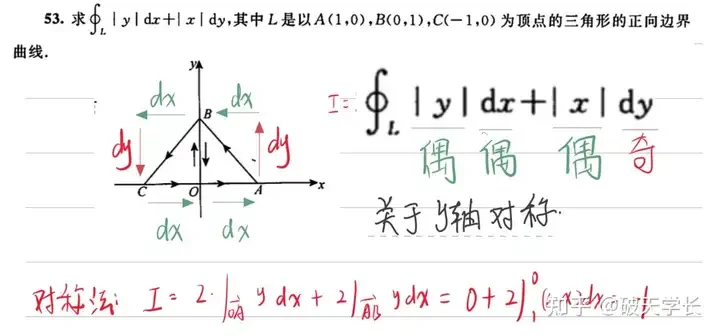 53. 求∮_L |y|dx+|x|dy,其中L是以A(1,0),B(0,1),C(-1,0)为顶点的三角形的正向边界
曲线.
y
dx dx
B
dy dy
C O A x
dx dx
I=∮_L |y|dx+|x|dy
偶 偶 偶 奇
关于y轴对称.
对称法: I = 2·∫_OA y dx + 2∫_AB y dx = 0+2∫_1^0
知乎 @破天学长